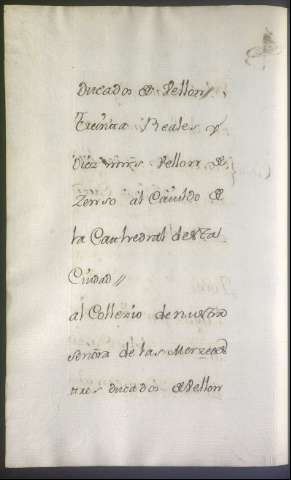 Ducados de Vellon//
treinta Reales y
Diez mrs. Vellon de
Zenso al Cavildo de
la Cathedral de esta
Ciudad//
al Collexio de nuestra
señora de las Merzed
tres ducados de Vellon